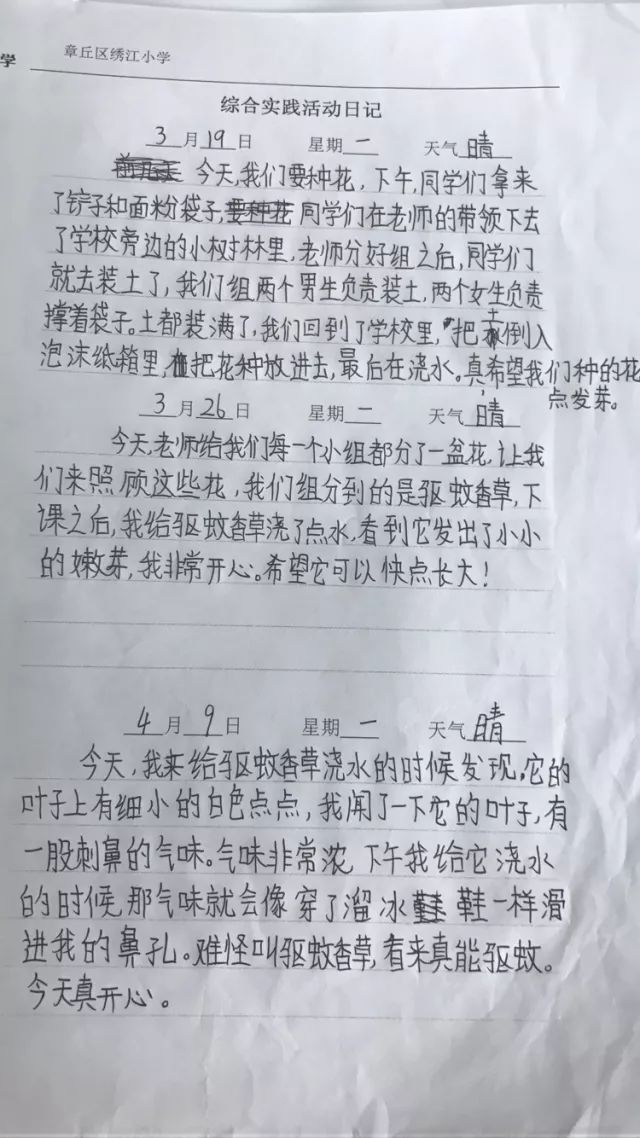 学
章丘区绣江小学
综合实践活动日记
3月19日 星期一 天气晴
今天,我们要种花,下午,同学们拿来
了铲子和面粉袋子,要种花同学们在老师的带领下去
了学校旁边的小树林里,老师分好组之后,同学们
就去装土了,我们组两个男生负责装土,两个女生负责
撑着袋子。土都装满了,我们回到了学校里,把土倒入
泡沫纸箱里,把花种放进去,最后在浇水。真希望我们种的花
点发芽。
3月26日 星期二 天气晴
今天,老师给我们每一个小组都分了一盆花,让我
们来照顾这些花,我们组分到的是驱蚊香草,下
课之后,我给驱蚊香草浇了点水,看到它发出了小小
的嫩芽,我非常开心。希望它可以快点长大!
4月9日 星期一 天气晴
今天,我来给驱蚊香草浇水的时候发现,它的
叶子上有细小的白色点点,我闻了一下它的叶子,有
一股刺鼻的气味。气味非常浓,下午我给它浇水
的时候,那气味就会像穿了溜冰鞋一样滑
进我的鼻孔。难怪叫驱蚊香草,看来真能驱蚊。
今天真开心。